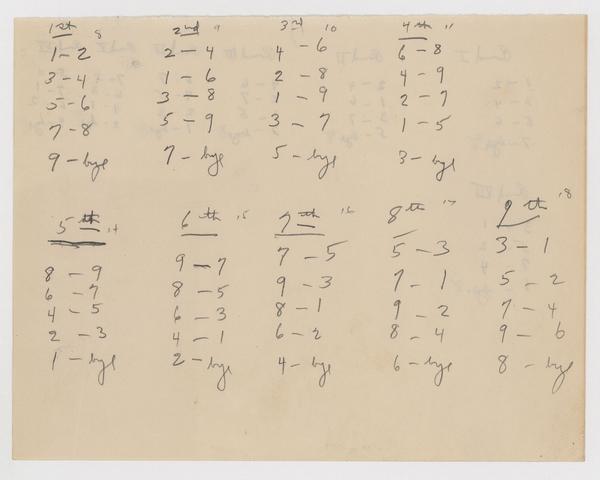 1st 8
1 - 2
3 - 4
5 - 6
7 - 8
9 - bye
2nd 9
2 - 4
1 - 6
3 - 8
5 - 9
7 - bye
3rd 10
4 - 6
2 - 8
1 - 9
3 - 7
5 - bye
4th 11
6 - 8
4 - 9
2 - 7
1 - 5
3 - bye
5th 14
8 - 9
6 - 7
4 - 5
2 - 3
1 - bye
6th 15
9 - 7
8 - 5
6 - 3
4 - 1
2 - bye
7th 16
7 - 5
9 - 3
8 - 1
6 - 2
4 - bye
8th 17
5 - 3
7 - 1
9 - 2
8 - 4
6 - bye
9th 18
3 - 1
5 - 2
7 - 4
9 - 6
8 - bye